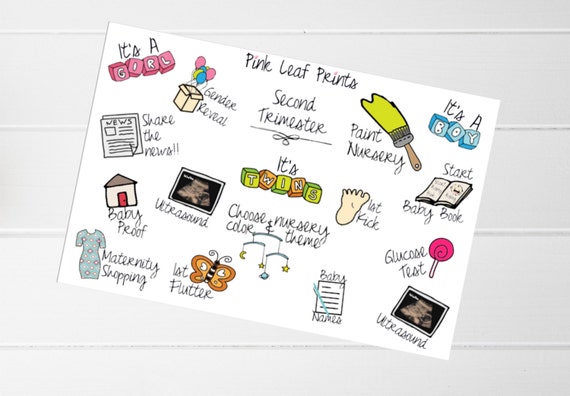 Pink Leaf Prints
It's A
GIRL
Gender
Reveal
Second
Trimester
Paint
Nursery
It's A
BOY
NEWS
Share
the
news!!
It's
TWINS
Start
Baby Book
Baby
Proof
Ultrasound
Choose nursery
color & theme
1st
Kick
Maternity
Shopping
1st
Flutter
Baby
Names
Glucose
Test
Ultrasound